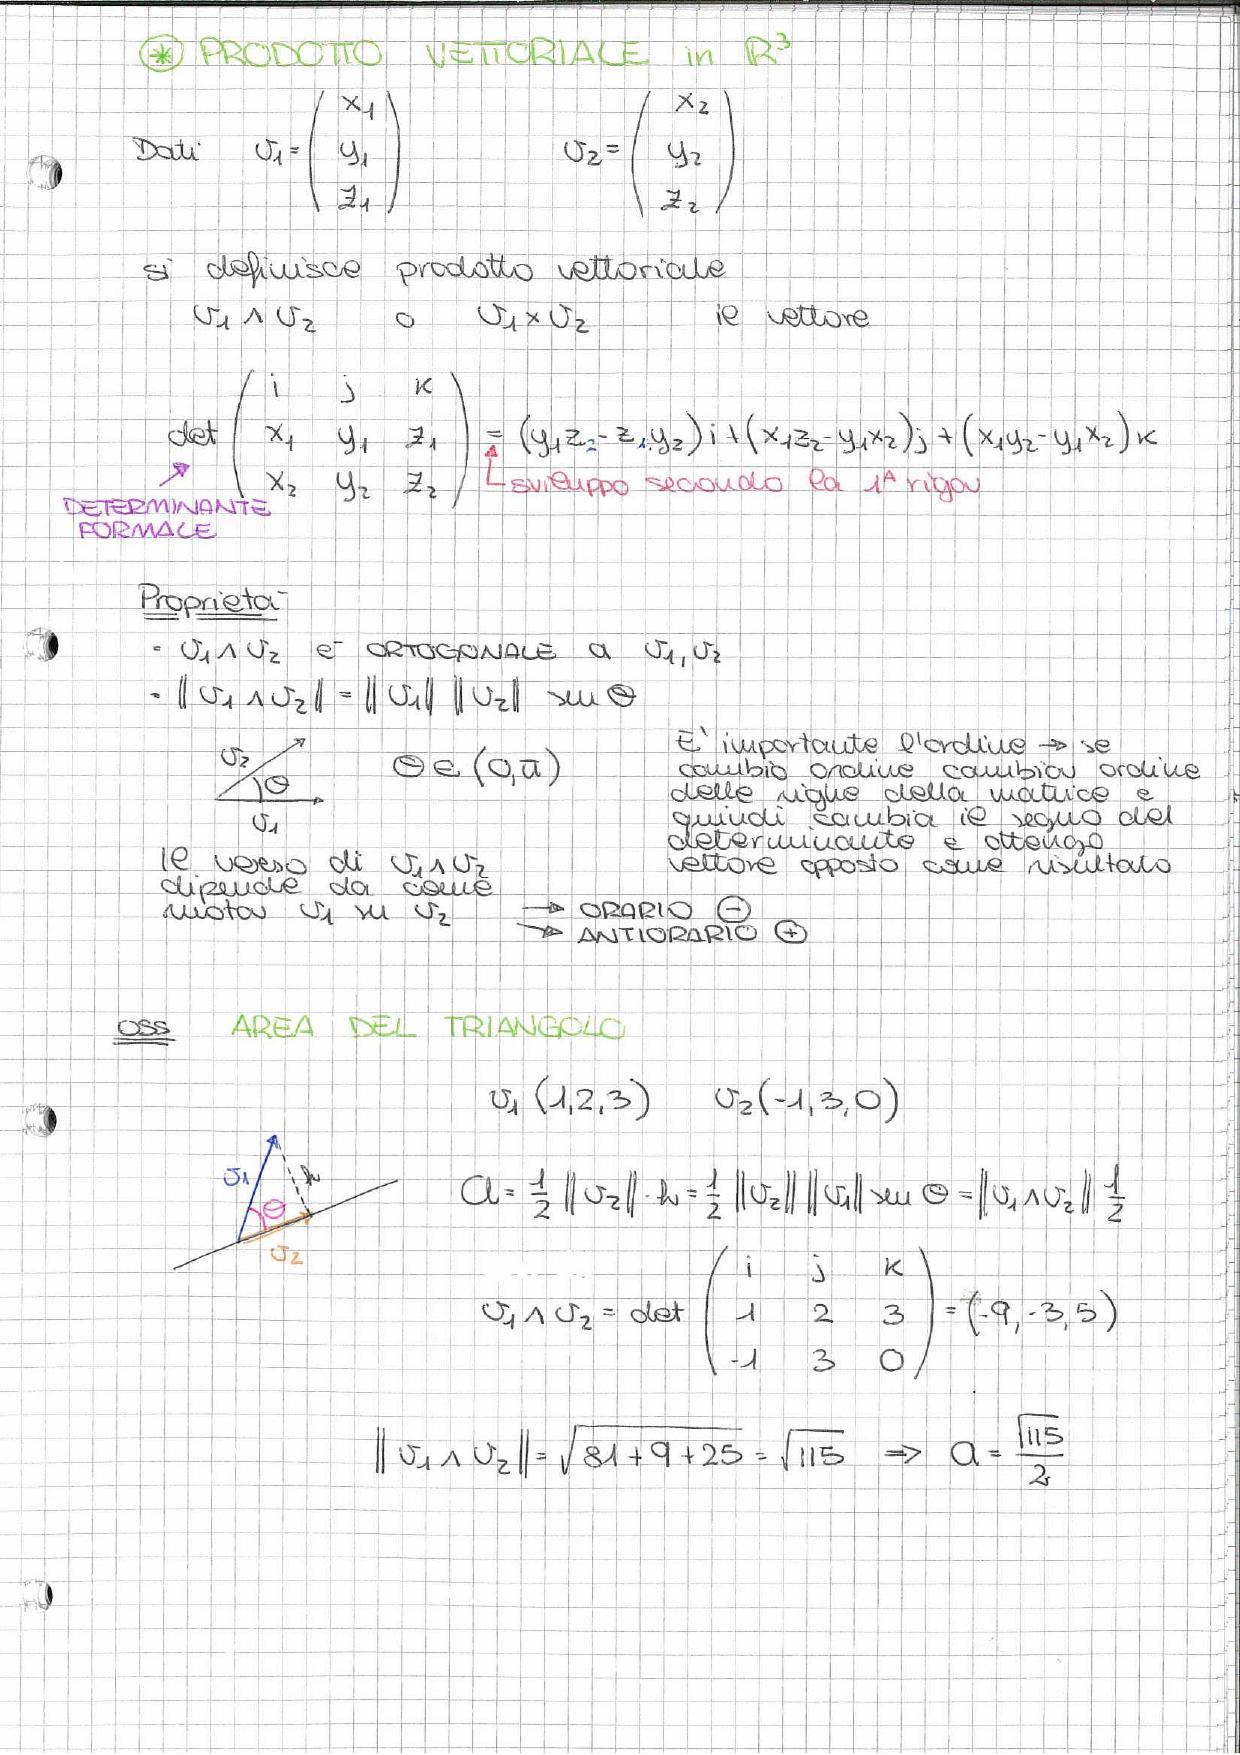 ⊛ PRODOTTO VETTORIALE in R³
Dati v₁ = (x₁ y₁ z₁) v₂ = (x₂ y₂ z₂)
si definisce prodotto vettoriale
v₁ ∧ v₂ o v₁ × v₂ il vettore
det (i j k
x₁ y₁ z₁
x₂ y₂ z₂) = (y₁z₂ - z₁y₂)i + (x₁z₂ - y₁x₂)j + (x₁y₂ - y₁x₂)k
sviluppo secondo la 1ᴬ riga
DETERMINANTE
FORMALE
Proprietà
- v₁ ∧ v₂ è ORTOGONALE a v₁, v₂
- ‖v₁ ∧ v₂‖ = ‖v₁‖ ‖v₂‖ sen θ
v₂ θ v₁
θ ∈ (0, π)
E' importante l'ordine → se
cambio ordine cambia ordine
delle righe della matrice e
quindi cambia il segno del
determinante e ottengo
vettore opposto come risultato
Il verso di v₁ ∧ v₂
dipende da come
ruota v₁ su v₂
→ ORARIO ⊖
→ ANTIORARIO ⊕
OSS AREA DEL TRIANGOLO
v₁ (1,2,3) v₂ (-1,3,0)
v₁ h θ v₂
a = 1/2 ‖v₂‖ · h = 1/2 ‖v₂‖ ‖v₁‖ sen θ = ‖v₁ ∧ v₂‖ 1/2
v₁ ∧ v₂ = det (i j k
1 2 3
-1 3 0) = (-9, -3, 5)
‖v₁ ∧ v₂‖ = √(81+9+25) = √115 ⇒ a = √115/2